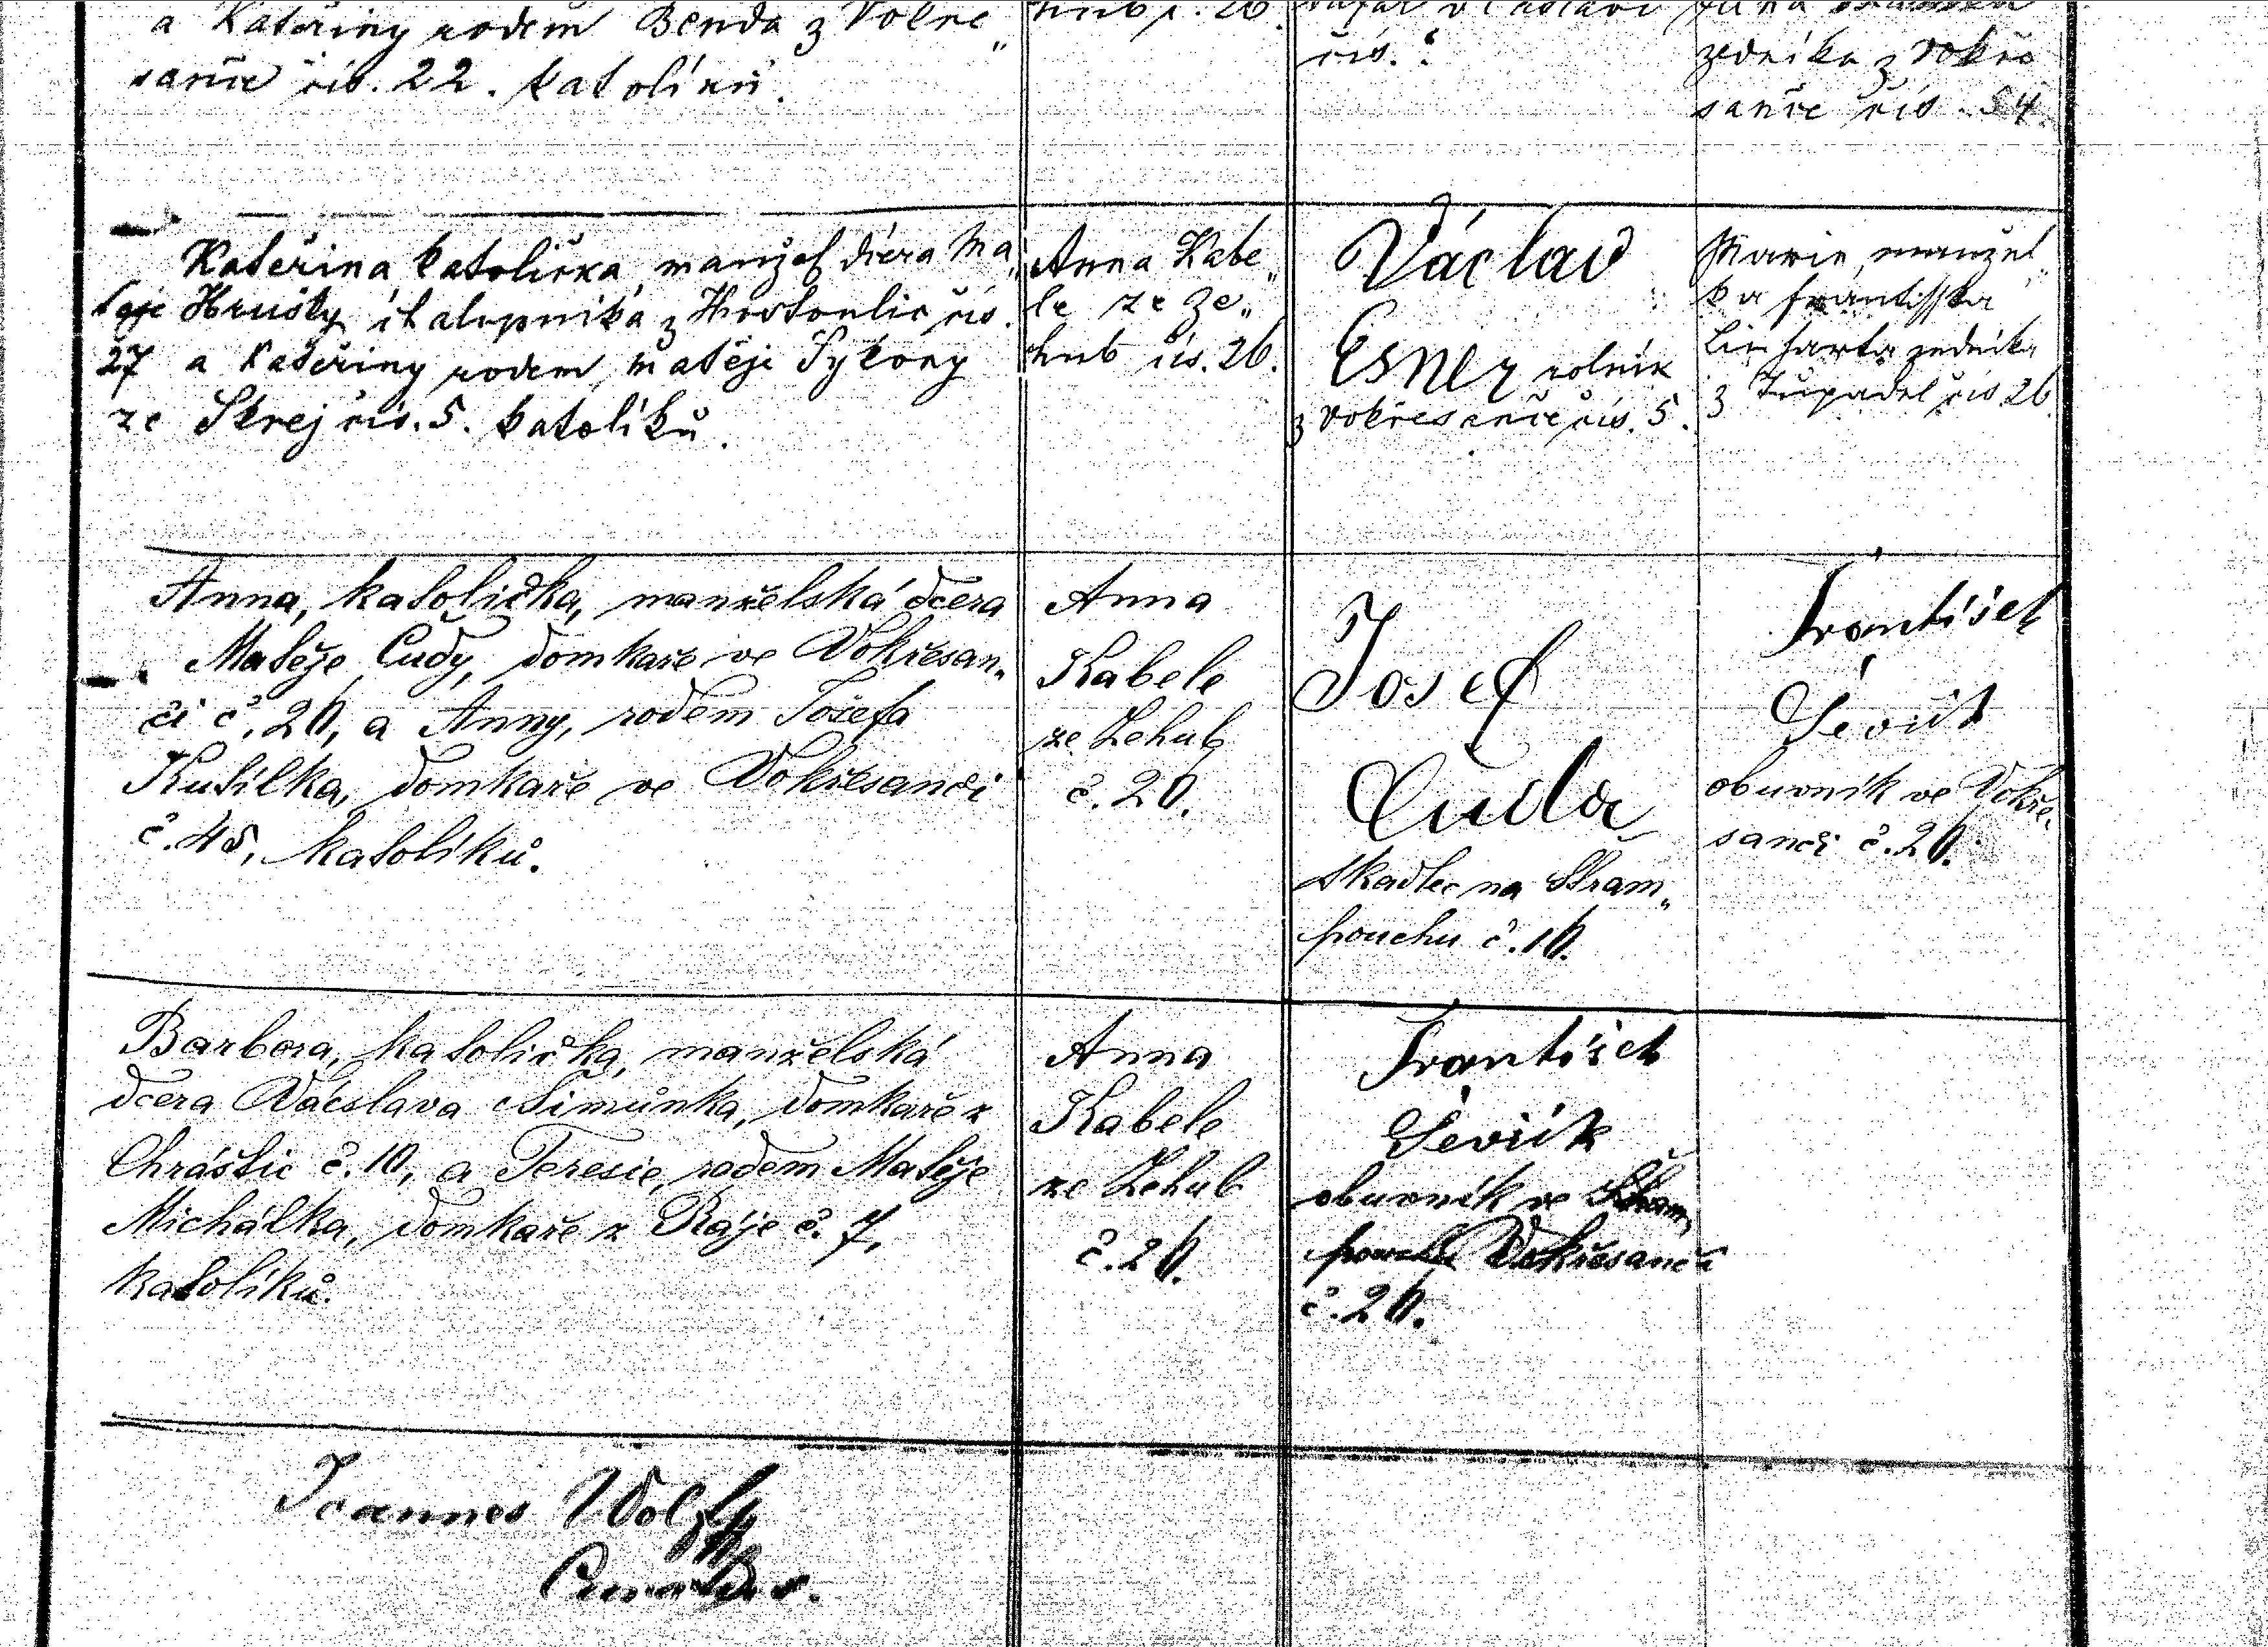 a Kateřiny rodem Benda z Vokře„
sanče čís. 22. katolíků.
čís.
zedníka z Vokře
sanče čís. 54.
Kateřina katolička, manžel dcera Ma„
těje Hrušky chalupníka z čís.
27 a Kateřiny rodem, matěje Sykory
ze Skrej čís. 5. katolíků.
Anna Kabe„
le ze Že„
hub čís. 26.
Václav
Esner rolník
z Vokřesanče čís. 5.
Marie, manžel„
ka Františka
Linharta zedníka
z Tupadel čís 26
Anna, katolička, manželská dcera
Matěje Čudy, domkaře ve Vokřesan„
či č. 26, a Anny, rodem Josefa
Kutílka, domkaře ve Vokřesanči
č. 45, katolíků.
Anna
Kabele
ze Žehub
č. 26.
Josef
Čuda
tkadlec na Štram„
pouchu č. 16.
František
Ševčík
obuvník ve Vokře„
sanči č. 26.
Barbora, katolička, manželská
dcera Václava Šimůnka, domkaře z
Chrástic č. 10, a Teresie, rodem Matěje
Michálka, domkaře z Ráje č. 7,
katolíků.
Anna
Kabele
ze Žehub
č. 26.
František
Ševčík
obuvník ve Štram„
pouchu Vokřesanči
č. 26.
Joannes Wolf